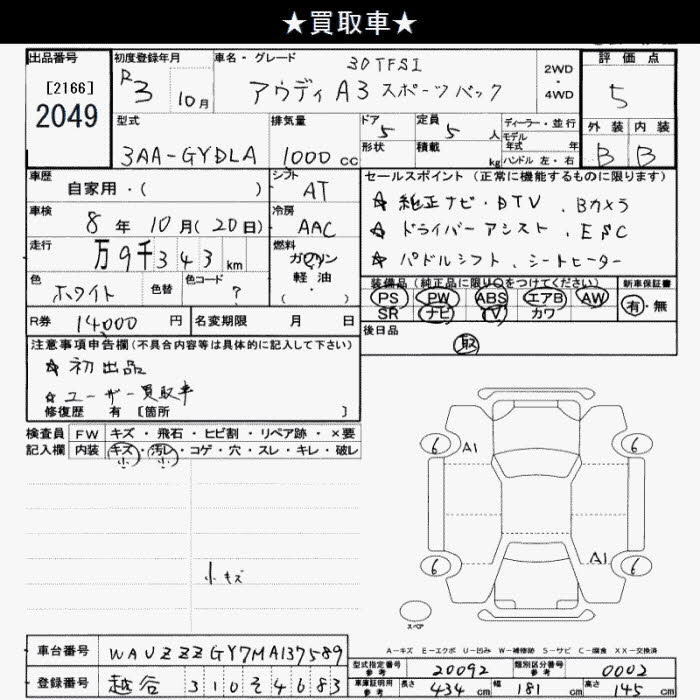 ★買取車★
出品番号 初度登録年月 車名・グレード 30TFSI 2WD・4WD 評価点
[2166] R3 10月 アウディA3スポーツバック 5
2049 型式 排気量 ドア 定員 ディーラー・並行 外装 内装
5 5 人 モデル年式 年
3AA-GYDLA 1000 cc 形状 積載 kg ハンドル 左・右 B B
車歴 シフト セールスポイント (正常に機能するものに限ります)
自家用・( ) AT ☆ 純正ナビ・DTV、Bカメラ
車検 冷房
8年 10月(20日) AAC ☆ ドライバーアシスト、ESC
走行 燃料
万9千343km ガソリン ☆ パドルシフト、シートヒーター
軽・油
( )
色 色替 色コード 装備品(純正品に限り○をつけてください) 新車保証書
ホワイト ? PS PW ABS エアB AW 有・無
SR ナビ TV カワ
R券 14,000円 名変期限 月 日 後日品
取
注意事項申告欄(不具合内容等は具体的に記入して下さい)
☆ 初出品
☆ ユーザー買取車
修復歴 有 [箇所 ]
検査員 FW キズ・飛石・ヒビ割・リペア跡・×要
記入欄 内装 キズ・汚レ・コゲ・穴・スレ・キレ・破レ
小 小
6 A1 6
小キズ
6 A1 6
スペア
A-キズ E-エクボ U-凹み W-補修跡 S-サビ C-腐食 XX-交換済
車台番号 WAUZZZGY7MA137589
型式指定番号 参考 20092 類別区分番号 参考 0002
登録番号 越谷 310そ4683
車庫証明用 参考 長さ 434 cm 幅 181 cm 高さ 145 cm